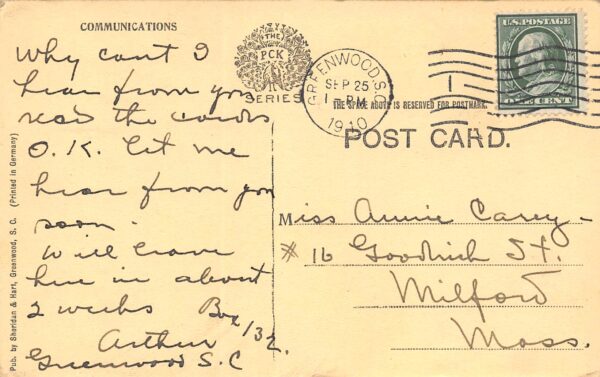 COMMUNICATIONS
Why cant I
hear from you
rec'd the cards
O.K. let me
hear from you
soon.
Will leave
here in about
2 weeks Box 132.
Arthur
Greenwood S.C
Pub. by Sheridan & Hart, Greenwood, S. C. (Printed in Germany)
(THE)
PCK
SERIES
GREENWOOD, S.C.
SEP 25
1 PM
1910
1
U.S. POSTAGE
ONE CENT
THE SPACE ABOVE IS RESERVED FOR POSTMARK.
POST CARD.
Miss Annie Carey -
# 16 Goodrich St.
Milford
Mass.